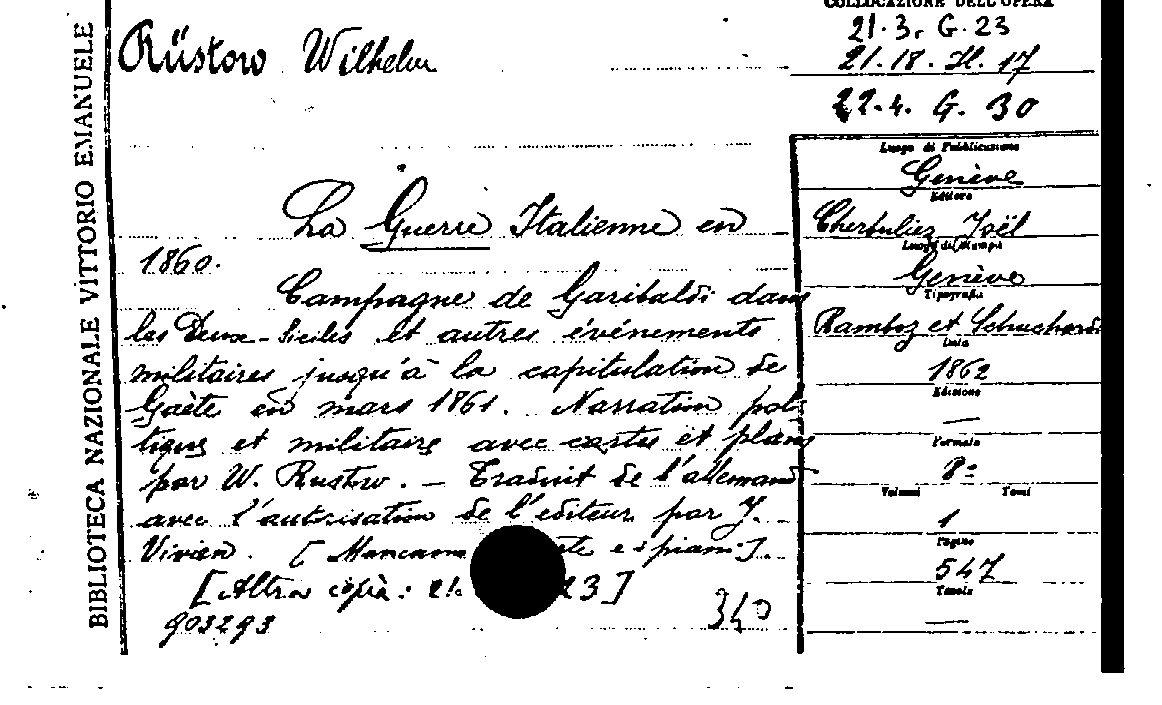 BIBLIOTECA NAZIONALE VITTORIO EMANUELE
Rüstow Wilhelm
COLLOCAZIONE DELL'OPERA
21.3. G.23
21.18. H. 17
22.4. G. 30
La Guerre Italienne en
1860.
Campagne de Garibaldi dans
les Deux-Siciles et autres événements
militaires jusqu'à la capitulation de
Gaète en mars 1861. Narration poli
tique et militaire avec cartes et plans
par W. Rustow. — Traduit de l'allemand
avec l'autorisation de l'editeur par J.
Vivien. [Mancano e piani].
[Altra copia: 21. 23]
903293
340
Luogo di Pubblicazione
Genève
Editore
Cherbuliez Joël
Luogo di Stampa
Genève
Tipografia
Ramboz et Schuchardt
Data
1862
Edizione
—
Formato
8º
Volumi Tomi
1
Pagine
547
Tavole
—